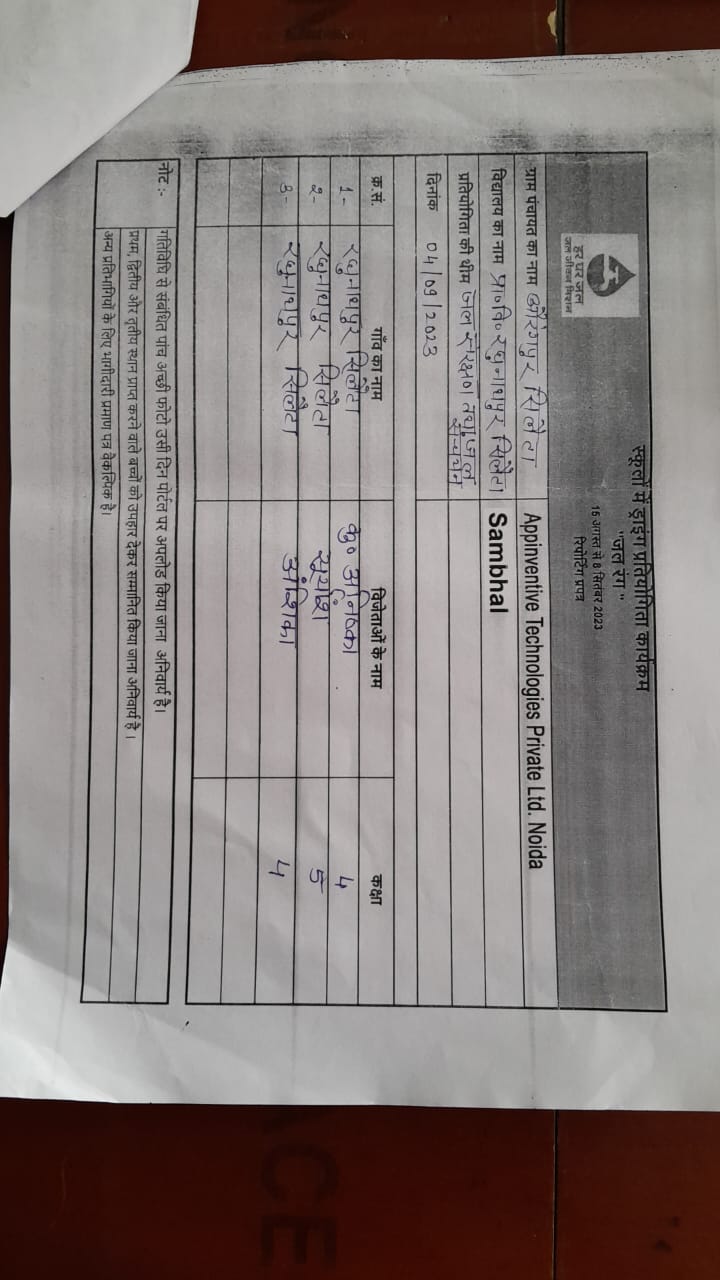 हर घर जल
जल जीवन मिशन
स्कूलों में ड्राइंग प्रतियोगिता कार्यक्रम
"जल रंग"
15 अगस्त से 8 सितंबर 2023
रिपोर्टिंग प्रपत्र
ग्राम पंचायत का नाम औरंगपुर सिलैटा Appinventive Technologies Private Ltd. Noida
विद्यालय का नाम प्रा०वि० रघुनाथपुर सिलैटा Sambhal
प्रतियोगिता की थीम जल संरक्षण तथा जल संचयन
दिनांक 04/09/2023
क्र.सं. गाँव का नाम विजेताओं के नाम कक्षा
1- रघुनाथपुर सिलैटा कु० अनिष्का 4
२- रघुनाथपुर सिलैटा सूर्यांश 5
३- रघुनाथपुर सिलैटा अंशिका 4
नोट :- गतिविधि से संबंधित पांच अच्छी फोटो उसी दिन पोर्टल पर अपलोड किया जाना अनिवार्य है।
प्रथम, द्वितीय और तृतीय स्थान प्राप्त करने वाले बच्चों को उपहार देकर सम्मानित किया जाना अनिवार्य है।
अन्य प्रतिभागियों के लिए भागीदारी प्रमाण पत्र वैकल्पिक है।